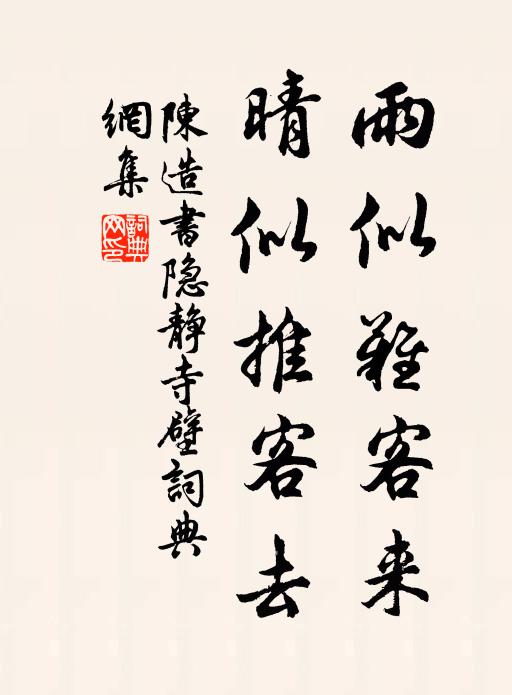 雨似難客来
晴似推客去
陳造書隐靜寺壁詞典
網集
詞典
网印